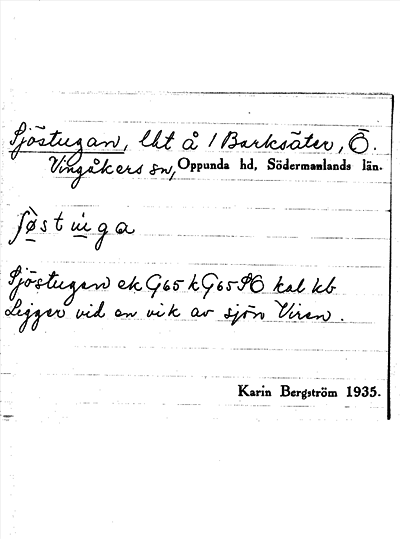 Sjöstugan, lht å 1 Barksäter, Ö.
Vingåkers sn, Oppunda hd, Södermanlands län.
Sjöstugan ek G65 k G65SO kal kb
Ligger vid en vik av sjön Viren.
Karin Bergström 1935.